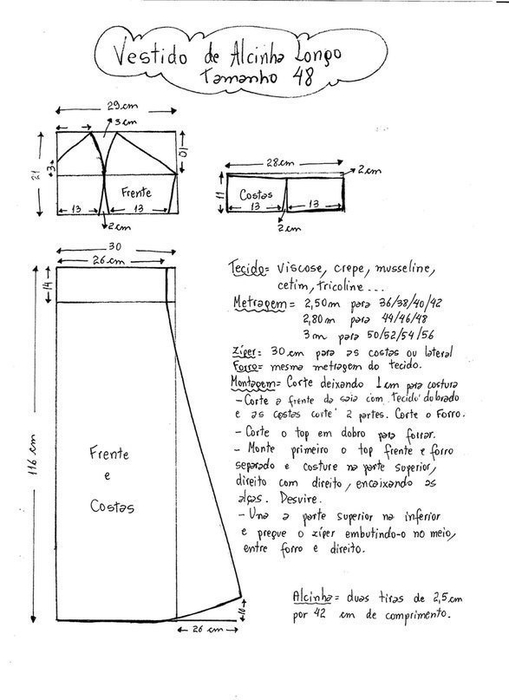 Vestido de Alcinha Longo
Tamanho 48
29 cm
3 cm
10
21
3
Frente
13
13
2 cm
28 cm
2 cm
11
Costas
13
13
2 cm
30
26 cm
14
116 cm
Frente
e
Costas
26 cm
Tecido= viscose, crepe, musseline,
cetim, tricoline...
Metragem= 2,50m para 36/38/40/42
2,80m para 44/46/48
3m para 50/52/54/56
Zíper= 30 cm para as costas ou lateral
Forro= mesma metragem do tecido.
Montagem= Corte deixando 1 cm para costura
- Corte a frente da saia com tecido dobrado
e as costas corte 2 partes. Corte o Forro.
- Corte o top em dobro para forrar.
- Monte primeiro o top frente e forro
separado e costure na parte superior,
direito com direito, encaixando as
alças. Desvire.
- Una a parte superior na inferior
e pregue o zíper embutindo-o no meio,
entre forro e direito.
Alcinha= duas tiras de 2,5 cm
por 42 cm de comprimento.